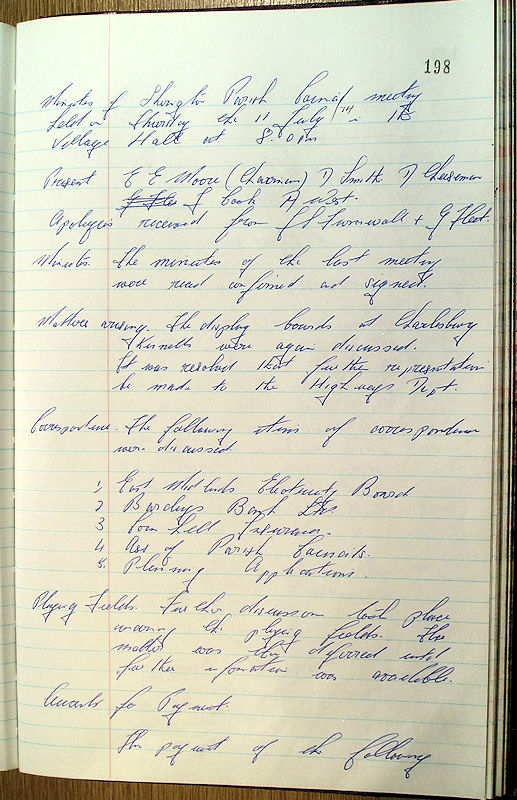 198
Minutes of Parish Council meeting
held on Thursday the 11 July /74 in
Village Hall at 8.0 pm
Present E E Moore (Chairman) D Smith D
J Cook A West.
Apologies received from + G Fleet.
Minutes. The minutes of the last meeting
were read confirmed and signed.
Matters arising. The display boards at
were again discussed.
It was resolved that further representation
be made to the Highways Dept.
Correspondence. The following items of correspondence
were discussed
1, East Midlands Electricity Board
2 Barclays Bank Ltd
3 Insurance.
4 Ass of Parish Councils.
5. Planning Applications.
Playing Fields. Further discussion took place
the playing fields. The
matter was then deferred until
further information was available.
Accounts for Payment.
The payment of the following